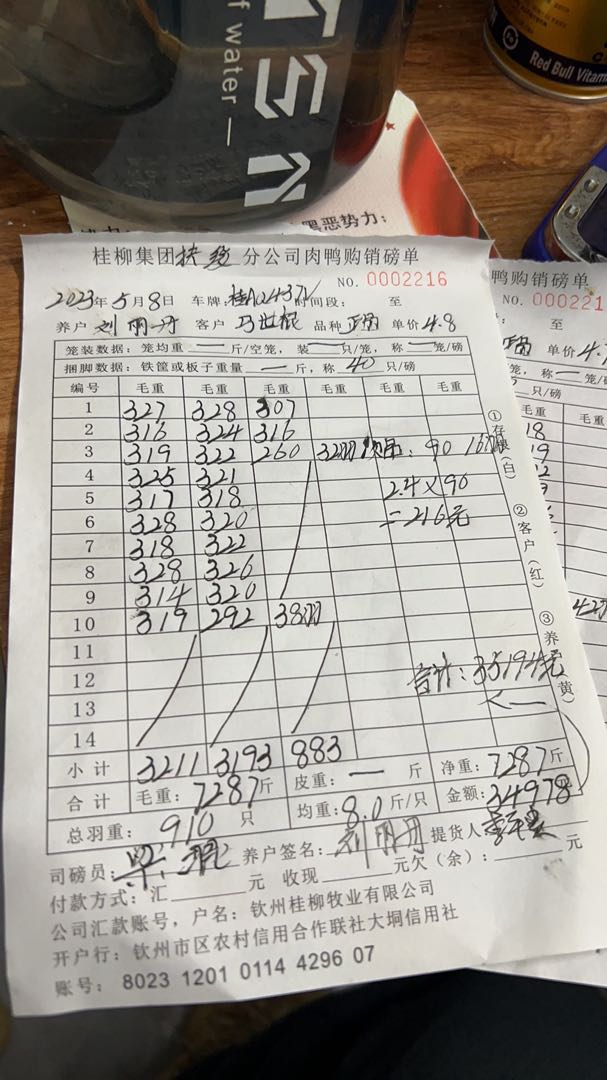 TSN
f water —
Red Bull Vitam
黑恶势力:
桂柳集团扶绥分公司肉鸭购销磅单
NO. 0002216
2023年5月8日 车牌: 时间段: 至
养户 刘丽丹 客户 马世棍 品种 单价 4.8
笼装数据: 笼均重 — 斤/空笼, 装 — 只/笼, 称 — 笼/磅
捆脚数据: 铁筐或板子重量 — 斤, 称 40 只/磅
编号 毛重 毛重 毛重 毛重 毛重 毛重
1 327 328 307
2 316 324 316
3 319 322 260 32羽 : 90
4 325 321
5 317 318 2.4×90
6 328 320 =216元
7 318 322
8 328 326
9 314 320
10 319 292 38羽
11
12
13
14
合计: 35194元
小计 3211 3193 883
合计 毛重: 7287斤 皮重: — 斤 净重: 7287斤
总羽重: 910 只 均重: 8.0斤/只 金额: 34978元
司磅员: 养户签名: 刘丽丹 提货人
付款方式: 汇 元 收现 元欠(余): 元
公司汇款账号, 户名: 钦州桂柳牧业有限公司
开户行: 钦州市区农村信用合作联社大垌信用社
账号: 8023 1201 0114 4296 07
①存根(白)
②客户(红)
③养户(黄)
鸭购销磅单
NO. 000221
: 至
单价 4.
笼, 称 — 笼/磅
只/磅
毛重 毛重